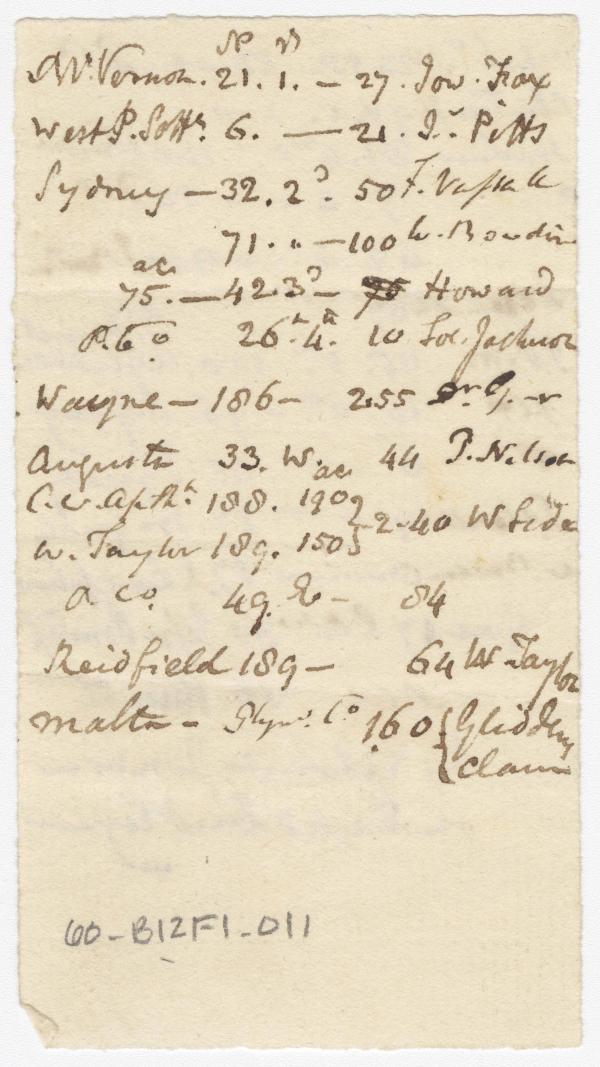 N R
Mt. Vernon. 21. 1. — 27. Jon. Fox
West P. Setts. 6. — 21. Jr. Pitts
Sydney — 32. 2d. 50 F. Vassall
71. " — 100 W. Bowdoin
ac.
75. — 42. 3d — Howard
P. Co 26. 4. 10 Sol. Jackson
Wayne — 186 — 255
Augusta 33. W. 44 P. Nelson
C. W. Apth. 188. 190 ac. } 2-40 W Side
W. Taylor 189. 150 }
a Co. 49. E — 84
Reidfield 189 — 64 W Taylor
Malta — Plym. Co 160 { Glidden
{ Claim
60-B12F1-011